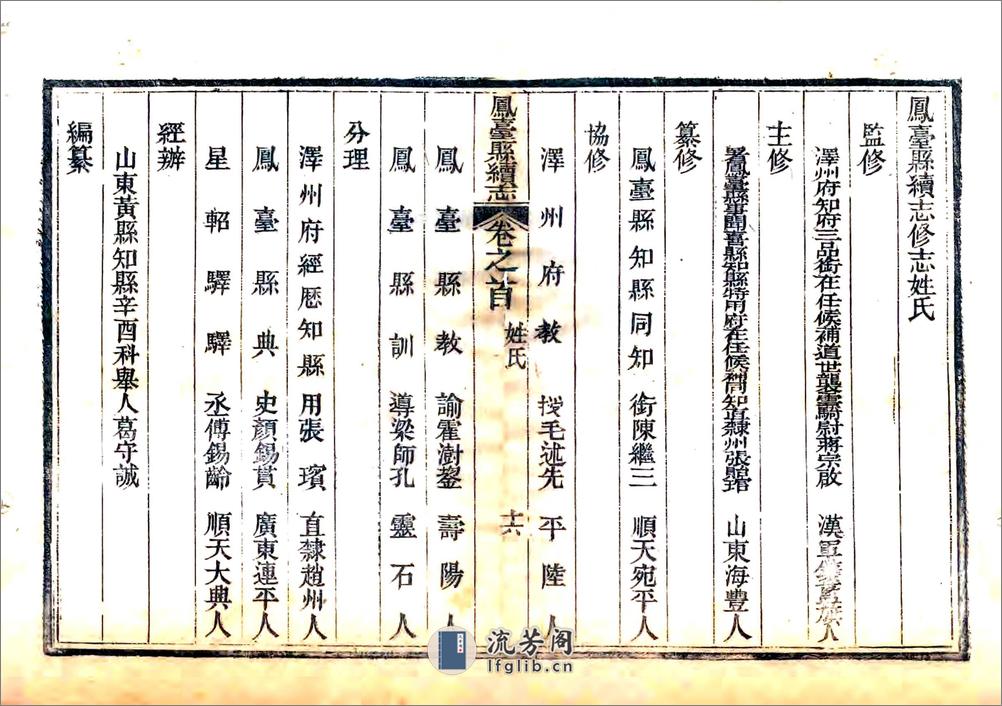 鳳臺縣續志修志姓氏
監修
澤州府知府三品銜在任候補道世襲雲騎尉蔣宗啟 漢軍人
主修
署鳳臺縣事聞喜縣知縣特用府在任候補直隸州張貽琯 山東海豐人
纂修
鳳臺縣知縣同知銜陳繼三 順天宛平人
協修
澤州府教授毛述先 平陸人
鳳臺縣續志 卷之首 姓氏 十六
鳳臺縣教諭霍澍鋆 壽陽人
鳳臺縣訓導梁師孔 靈石人
分理
澤州府經厯知縣用張璸 直隸趙州人
鳳臺縣典史顏錫貫 廣東連平人
星軺驛驛丞傅錫齡 順天大興人
經辦
山東黃縣知縣辛酉科舉人葛守誠
編纂
流芳阁
lfglib.cn